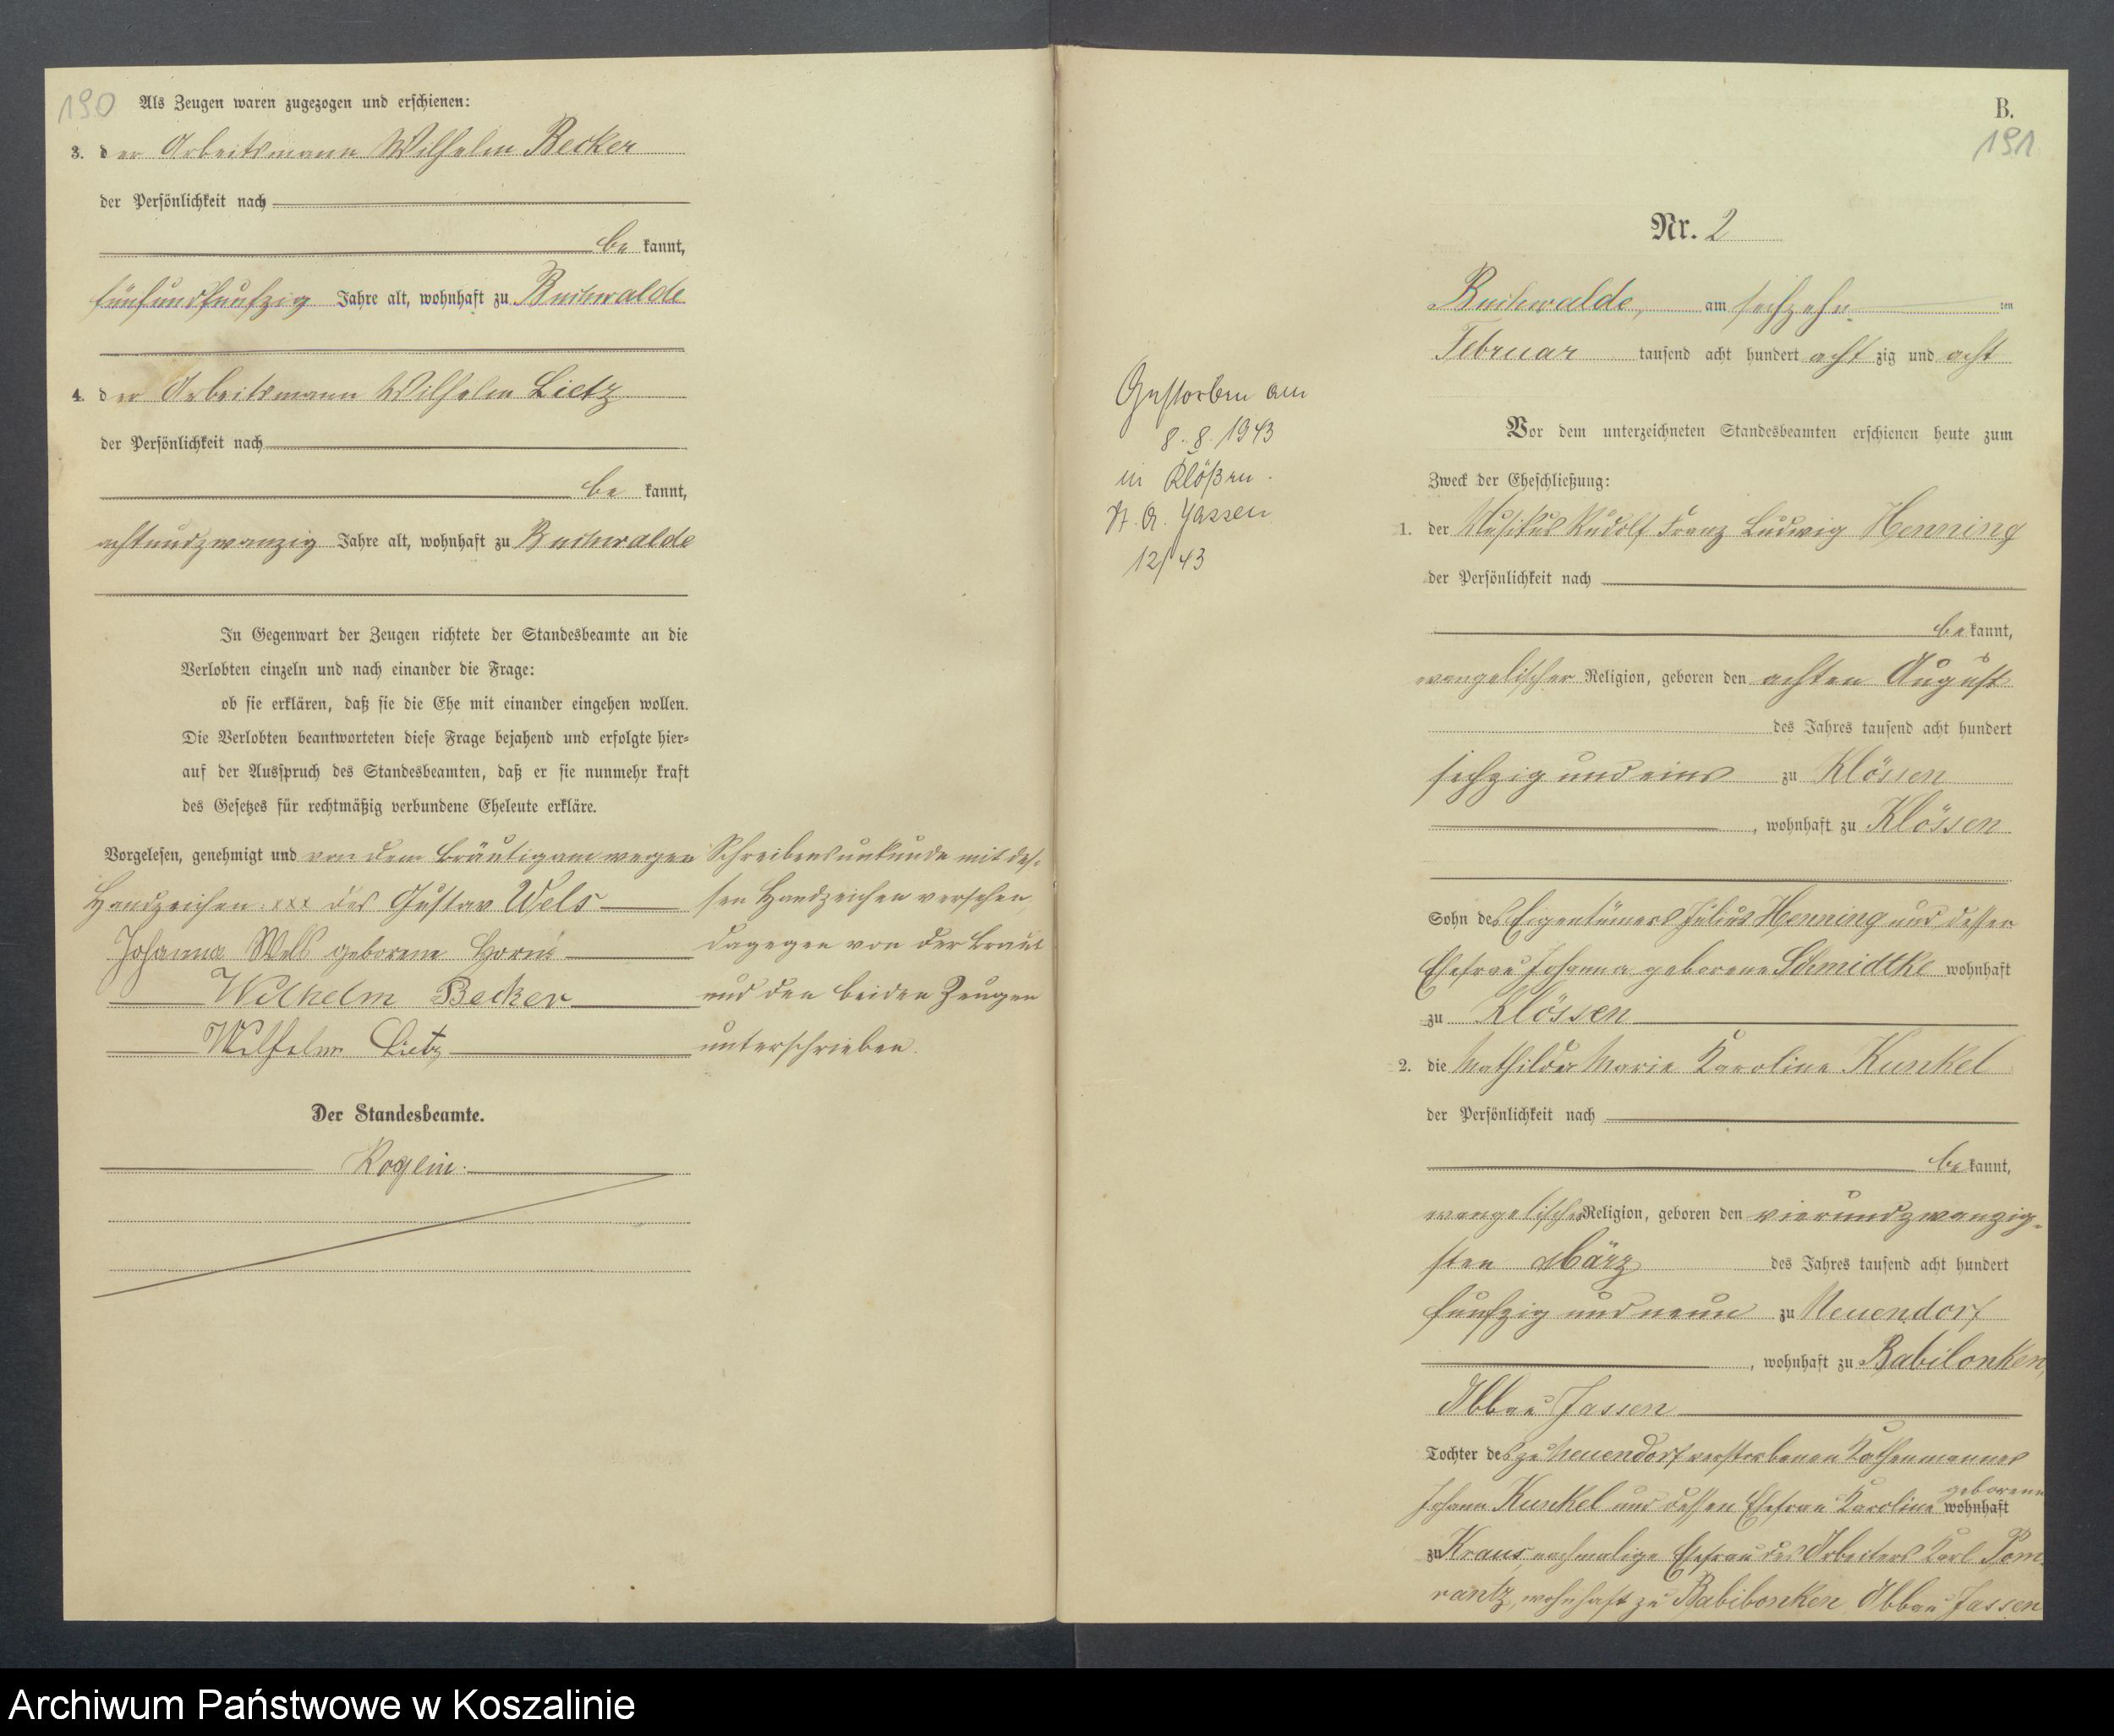 190
Als Zeugen waren zugezogen und erschienen:
3. der Arbeitsmann Wilhelm Becker
der Persönlichkeit nach
be kannt,
fünfundfunfzig Jahre alt, wohnhaft zu Buchwalde
4. der Arbeitsmann Wilhelm Lietz
der Persönlichkeit nach
be kannt,
achtundzwanzig Jahre alt, wohnhaft zu Buchwalde
In Gegenwart der Zeugen richtete der Standesbeamte an die
Verlobten einzeln und nach einander die Frage:
ob sie erklären, daß sie die Ehe mit einander eingehen wollen.
Die Verlobten beantworteten diese Frage bejahend und erfolgte hier-
auf der Ausspruch des Standesbeamten, daß er sie nunmehr kraft
des Gesetzes für rechtmäßig verbundene Eheleute erkläre.
Vorgelesen, genehmigt und von dem Bräutigam wegen Schreibensunkunde mit des-
Handzeichen xxx des Gustav Wels
sen Handzeichen versehen,
Johanna Wels geborene Horn
dagegen von der Braut
Wilhelm Becker
und den beiden Zeugen
Wilhelm Lietz
unterschrieben.
Der Standesbeamte.
Roglin.
B.
191
Nr. 2
Buchwalde, am sechzehn ten
Februar tausend acht hundert acht zig und acht
Vor dem unterzeichneten Standesbeamten erschienen heute zum
Zweck der Eheschließung:
1. der Musikus Rudolf Franz Ludwig Henning
der Persönlichkeit nach
be kannt,
evangelischer Religion, geboren den achten August
des Jahres tausend acht hundert
sechzig und eins zu Klössen
, wohnhaft zu Klössen
Sohn des Eigentümers Julius Henning und dessen
Ehefrau Johanna geborene Schmidtke wohnhaft
zu Klössen
2. die Mathilde Marie Karoline Kunkel
der Persönlichkeit nach
be kannt,
evangelischer Religion, geboren den vierundzwanzig-
sten März des Jahres tausend acht hundert
funfzig und neun zu Neuendorf
, wohnhaft zu Babilonken,
Abbau Jassen
Tochter des zu Neuendorf verstorbenen Kathenmannes
Johann Kunkel und dessen Ehefrau Karoline geborene wohnhaft
zu Kraus, nachmalige Ehefrau des Arbeiters Karl Pom-
rantz, wohnhaft zu Babilonken Abbau Jassen
Gestorben am
8. 8. 1943
in Klößen.
St. A. Jassen
12/43
Archiwum Państwowe w Koszalinie